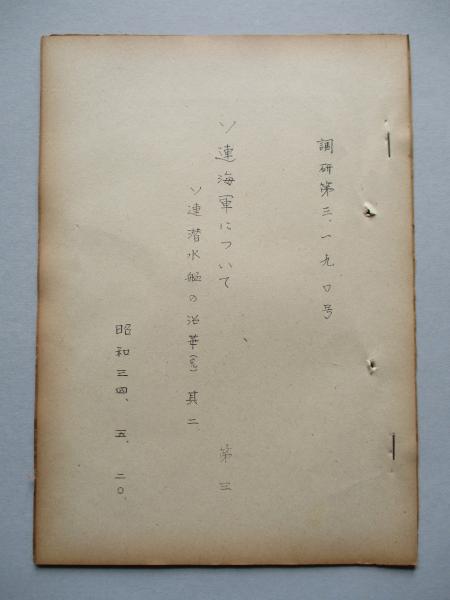 調研第三、一九〇号
ソ連海軍について 第三
ソ連潜水艦の沿革 其二
昭和三四、五、二〇、